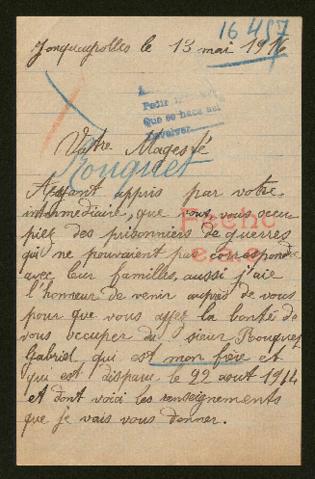 16487
Jonqueyrolles le 13 mai 1916
Pedir
Que se haga asi
Devolver
Votre Magesté
Rouquet
Ayyant appris par votre
intermediaire, que vous vous occu
piez des prisonniers de guerres
qui ne pouvaient pas correspondre
avec leur familles, aussi j'aie
l'honneur de venir auprès de vous
pour que vous ayez la bonté de
vous occuper du sieur Rouquet
Gabriel qui est mon frère et
qui est disparu le 22 aout 1914
et dont voici les renseignements
que je vais vous donner.